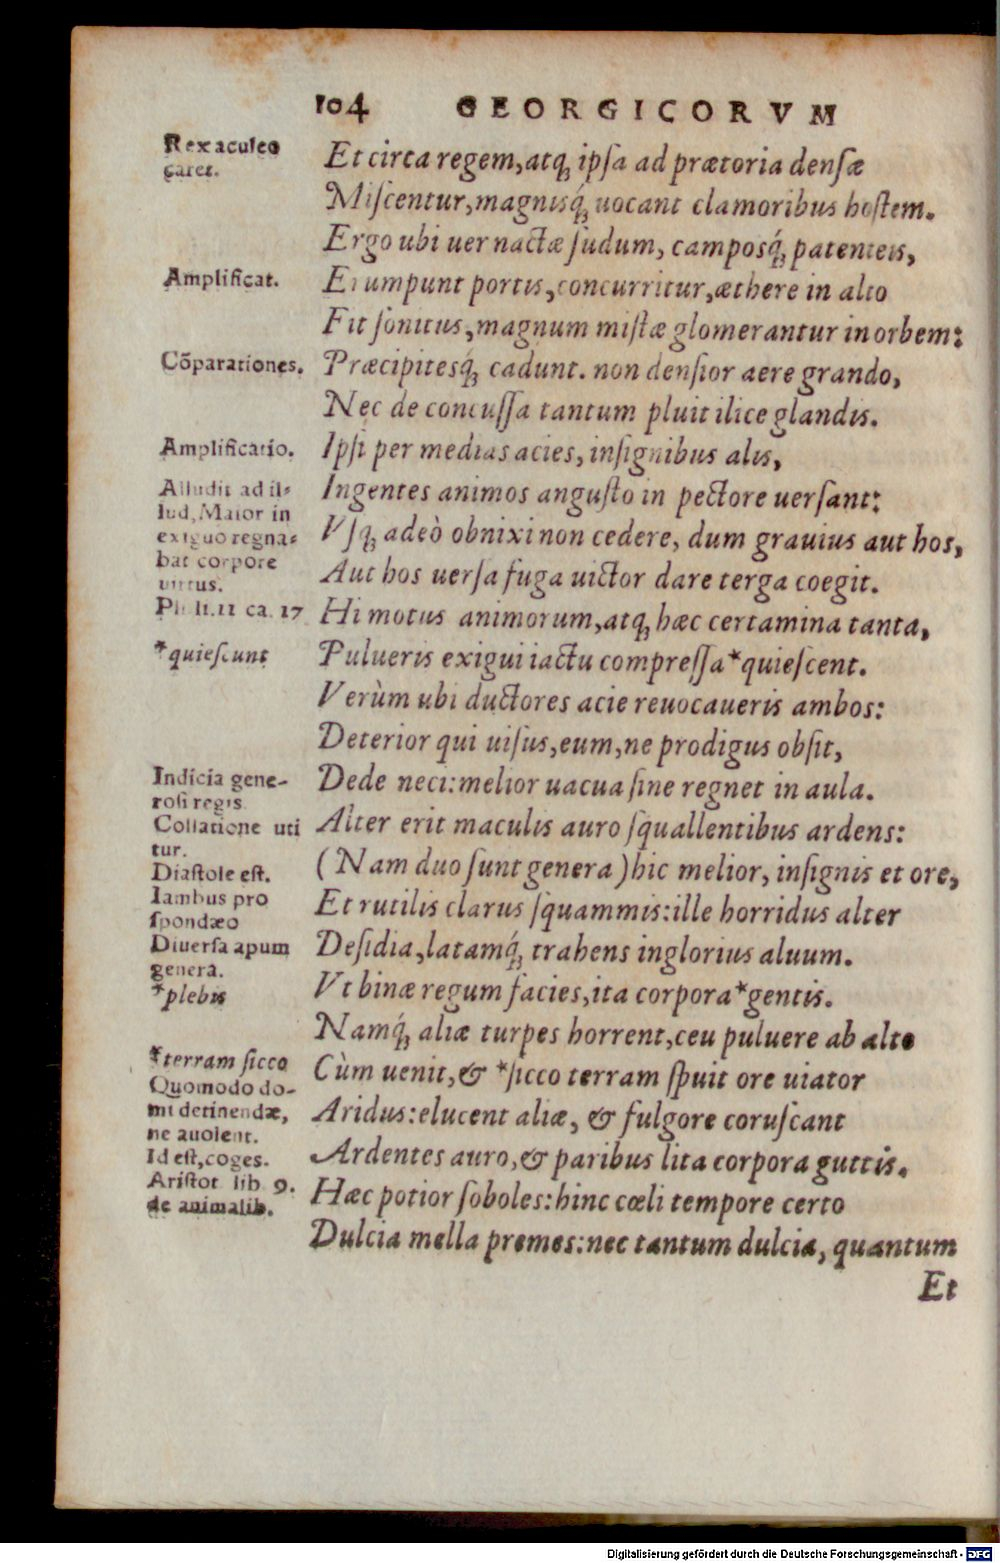 104 GEORGICORVM
Rex aculeo
caret.
Et circa regem, atq; ipsa ad prætoria densæ
Miscentur, magnisq́; uocant clamoribus hostem.
Ergo ubi uer nactæ sudum, camposq́; patenteis,
Amplificat.
Erumpunt portis, concurritur, æthere in alto
Fit sonitus, magnum mistæ glomerantur in orbem:
Cõparationes.
Præcipitesq́; cadunt. non densior aere grando,
Nec de concussa tantum pluit ilice glandis.
Amplificatio.
Ipsi per medias acies, insignibus alis,
Alludit ad il-
lud, Maior in
exiguo regna-
bat corpore
uirtus.
Ingentes animos angusto in pectore uersant:
Vsq; adeò obnixi non cedere, dum grauius aut hos,
Aut hos uersa fuga uictor dare terga coegit.
Pli. li. 11 ca. 17
Hi motus animorum, atq; hæc certamina tanta,
*quiescunt
Pulueris exigui iactu compressa *quiescent.
Verùm ubi ductores acie reuocaueris ambos:
Deterior qui uisus, eum, ne prodigus obsit,
Indicia gene-
rosi regis
Dede neci: melior uacua sine regnet in aula.
Collatione uti
tur.
Alter erit maculis auro squallentibus ardens:
Diastole est.
(Nam duo sunt genera) hic melior, insignis et ore,
Iambus pro
spondæo
Et rutilis clarus squammis: ille horridus alter
Diuersa apum
genera.
Desidia, latamq́; trahens inglorius aluum.
*plebis
Vt binæ regum facies, ita corpora *gentis.
Namq́; aliæ turpes horrent, ceu puluere ab alto
*terram sicco
Cùm uenit, & *sicco terram spuit ore uiator
Quomodo do-
mi detinendæ,
ne auolent.
Aridus: elucent aliæ, & fulgore coruscant
Id est, coges.
Ardentes auro, & paribus lita corpora guttis.
Aristot lib 9.
de animalib.
Hæc potior soboles: hinc cœli tempore certo
Dulcia mella premes: nec tantum dulcia, quantum
Et
Digitalisierung gefördert durch die Deutsche Forschungsgemeinschaft - DFG